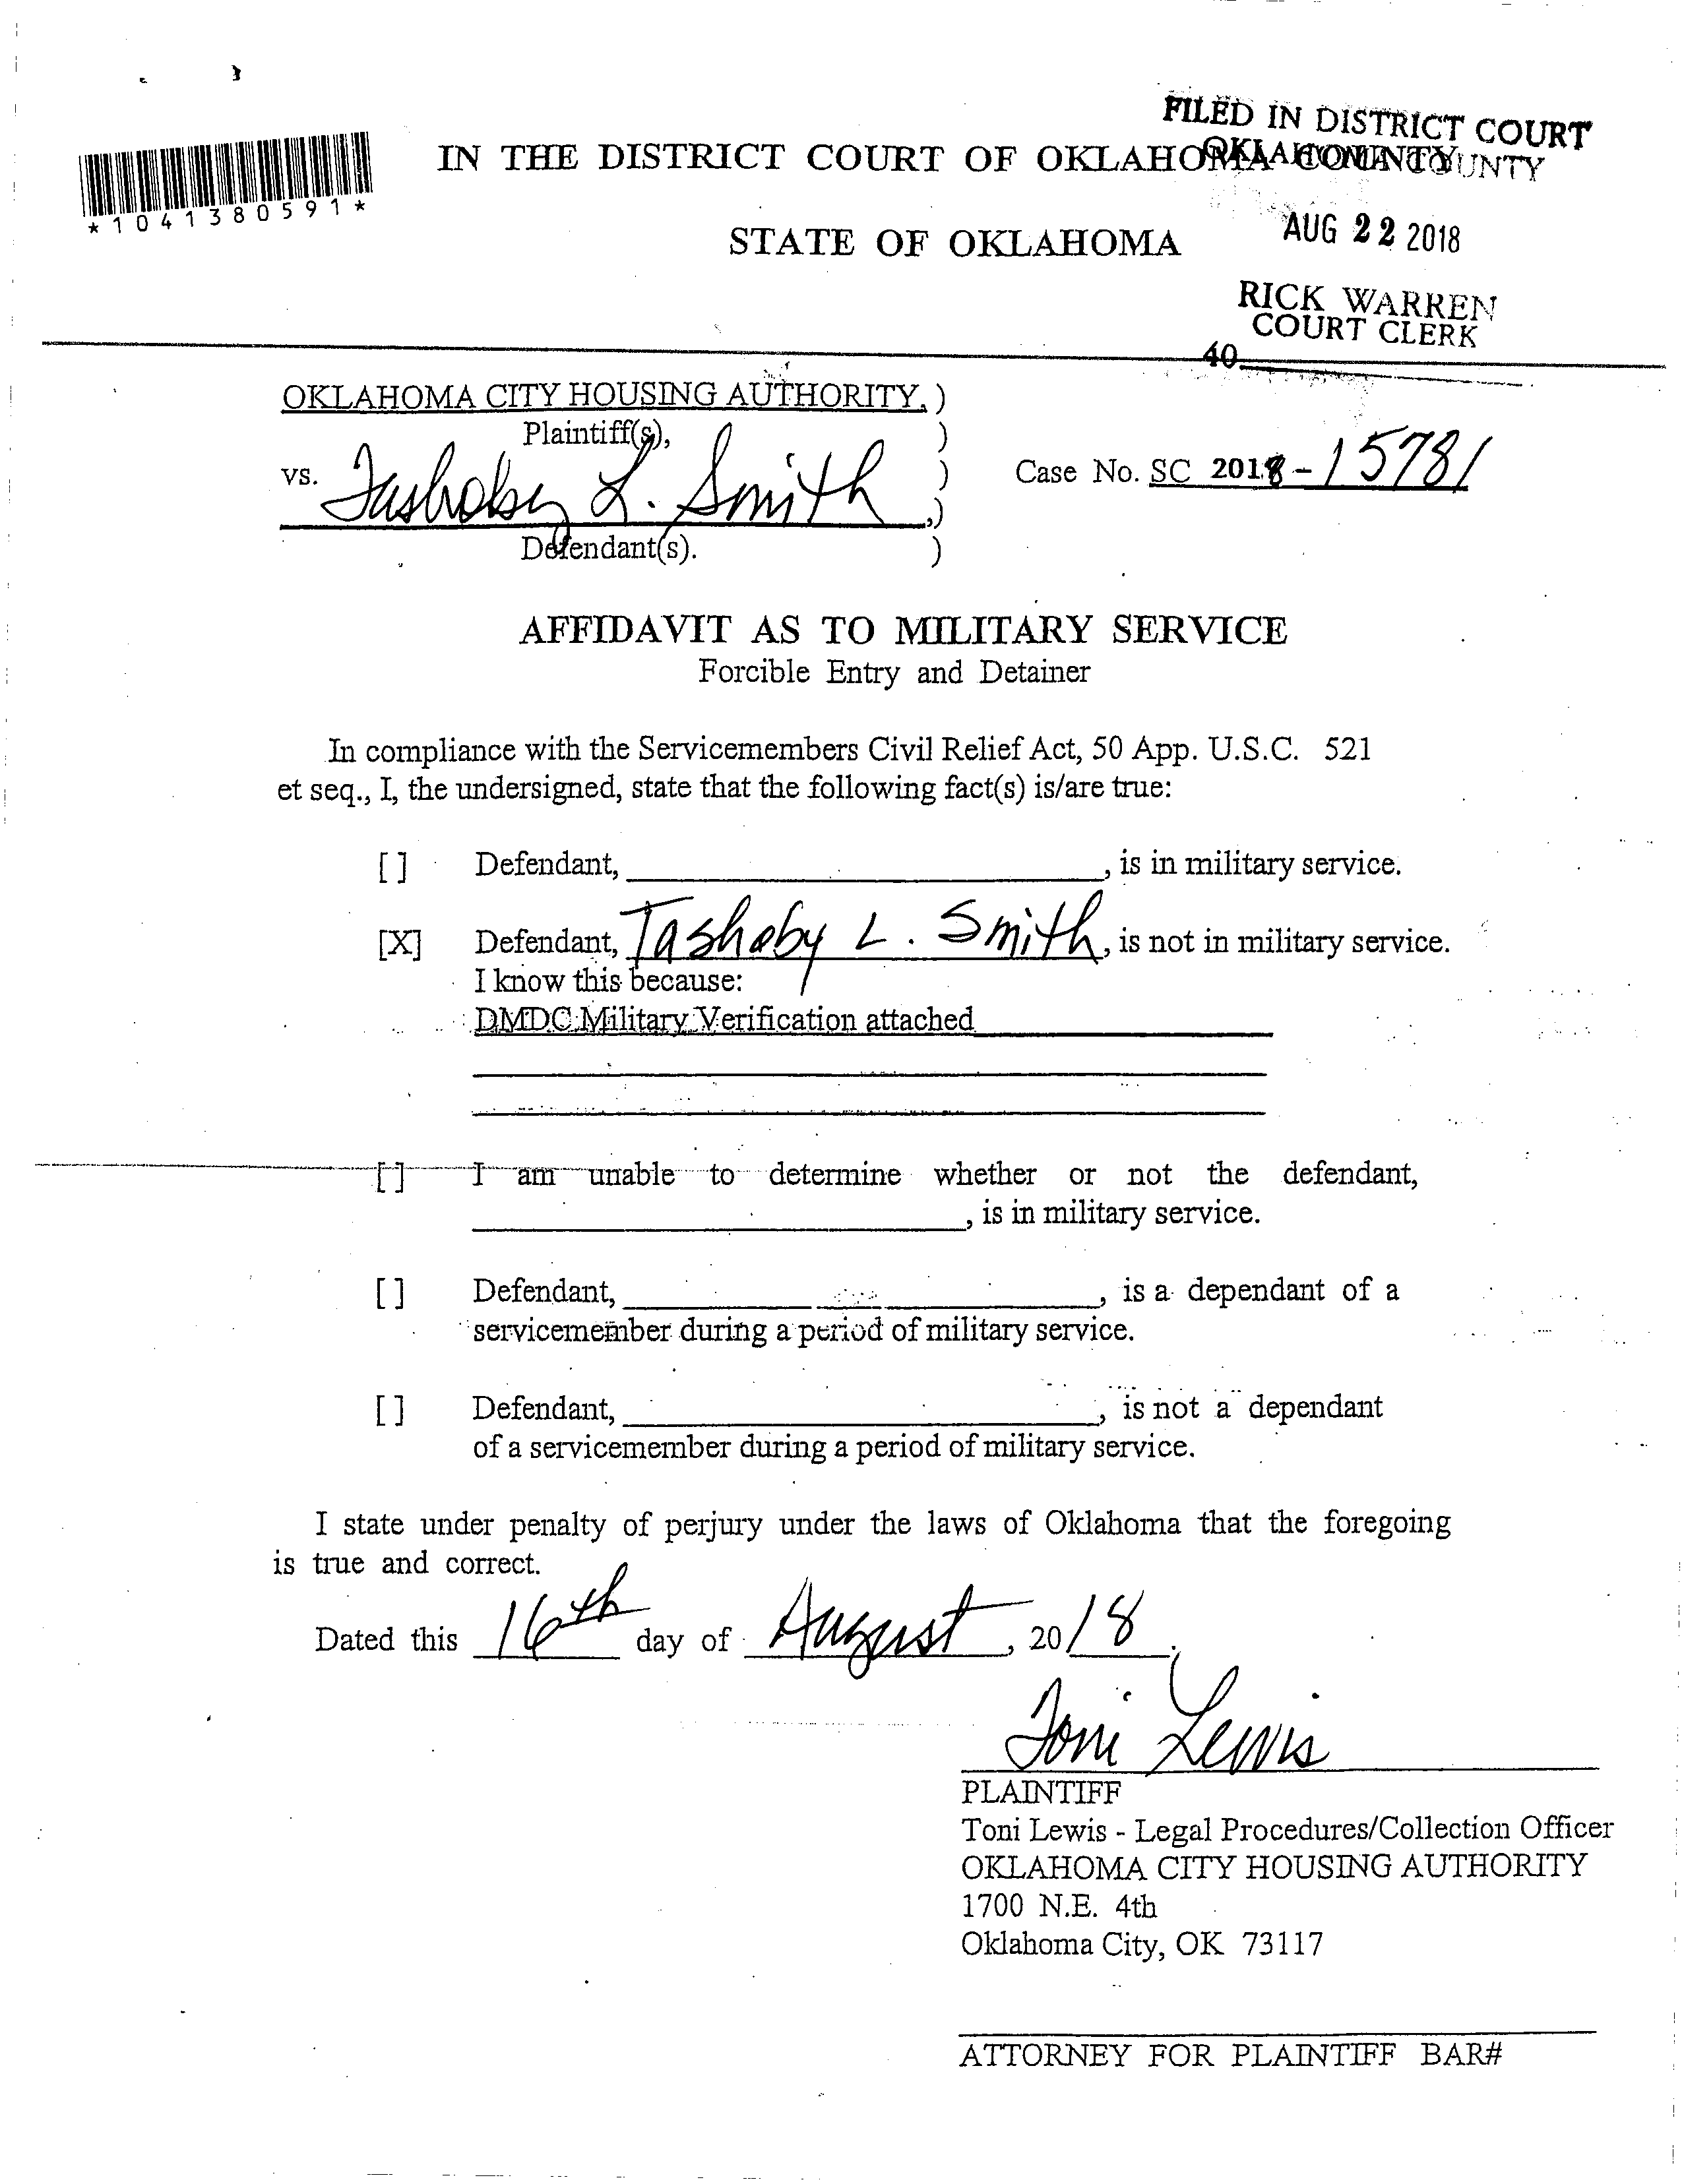 FILED IN DISTRICT COURT
OKLAHOMA COUNTY
IN THE DISTRICT COURT OF OKLAHOMA COUNTY
*1041380591*
AUG 22 2018
STATE OF OKLAHOMA
RICK WARREN
COURT CLERK
40
OKLAHOMA CITY HOUSING AUTHORITY, )
Plaintiff(s), )
vs. Tashaby L. Smith )
Case No. SC 2018-15781
,)
Defendant(s). )
AFFIDAVIT AS TO MILITARY SERVICE
Forcible Entry and Detainer
In compliance with the Servicemembers Civil Relief Act, 50 App. U.S.C. 521
et seq., I, the undersigned, state that the following fact(s) is/are true:
[ ] Defendant, , is in military service.
[X] Defendant, Tashaby L. Smith, is not in military service.
I know this because:
DMDC Military Verification attached
[ ] I am unable to determine whether or not the defendant,
, is in military service.
[ ] Defendant, , is a dependant of a
servicemember during a period of military service.
[ ] Defendant, , is not a dependant
of a servicemember during a period of military service.
I state under penalty of perjury under the laws of Oklahoma that the foregoing
is true and correct.
Dated this 16th day of August, 2018.
Toni Lewis
PLAINTIFF
Toni Lewis - Legal Procedures/Collection Officer
OKLAHOMA CITY HOUSING AUTHORITY
1700 N.E. 4th
Oklahoma City, OK 73117
ATTORNEY FOR PLAINTIFF BAR#